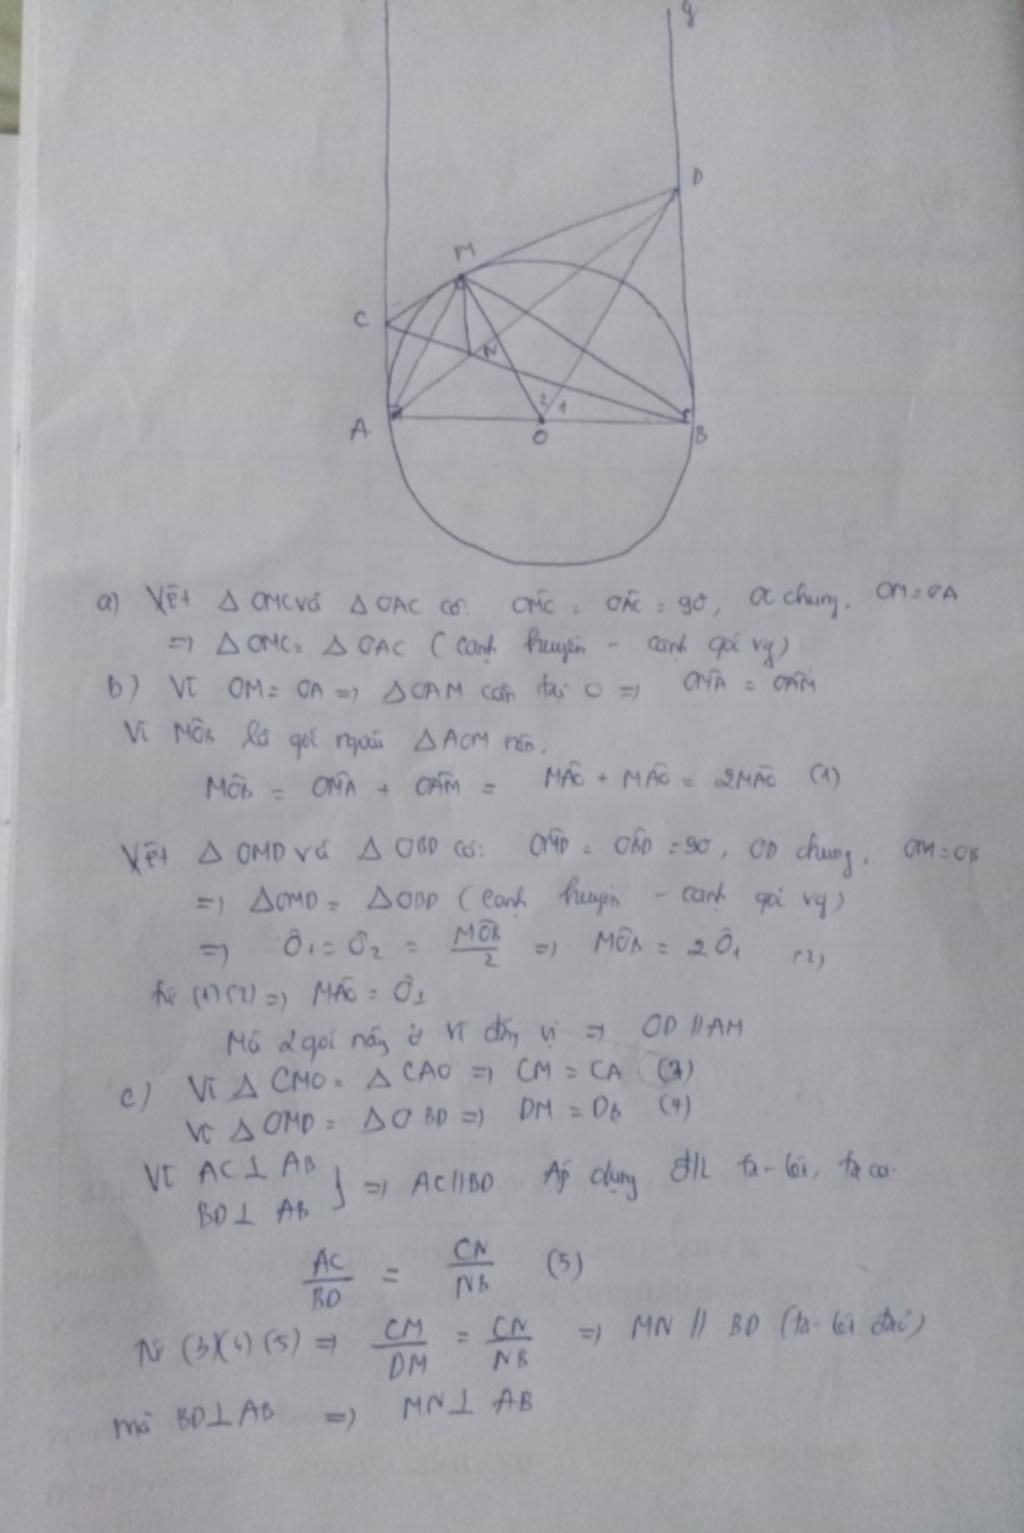 y
D
M
C
N
2 1
A
O
B
a) Xét Δ OMC và Δ OAC có: OM̂C = OÂC = 90, OC chung, OM = OA
=> Δ OMC = Δ OAC (cạnh huyền - cạnh góc vg)
b) Vì OM = OA => Δ OAM cân tại O => OM̂A = OÂM
Vì MÔB là góc ngoài Δ AOM nên.
MÔB = OM̂A + OÂM = MÂO + MÂO = 2MÂO (1)
Xét Δ OMD và Δ OBD có: OM̂D = OB̂D = 90, OD chung, OM = OB
=> Δ OMD = Δ OBD (cạnh huyền - cạnh góc vg)
=> Ô1 = Ô2 = MÔB/2 => MÔB = 2 Ô1 (2)
Từ (1) (2) => MÂO = Ô1
Mà 2 góc này ở vị đồng vị => OD // AM
c) Vì Δ CMO = Δ CAO => CM = CA (3)
Vì Δ OMD = Δ OBD => DM = DB (4)
Vì AC ⊥ AB
BD ⊥ AB } => AC // BD Áp dụng đ/l ta-lét, ta có.
AC/BD = CN/NB (5)
Từ (3)(4)(5) => CM/DM = CN/NB => MN // BD (ta-lét đảo)
Mà BD ⊥ AB => MN ⊥ AB